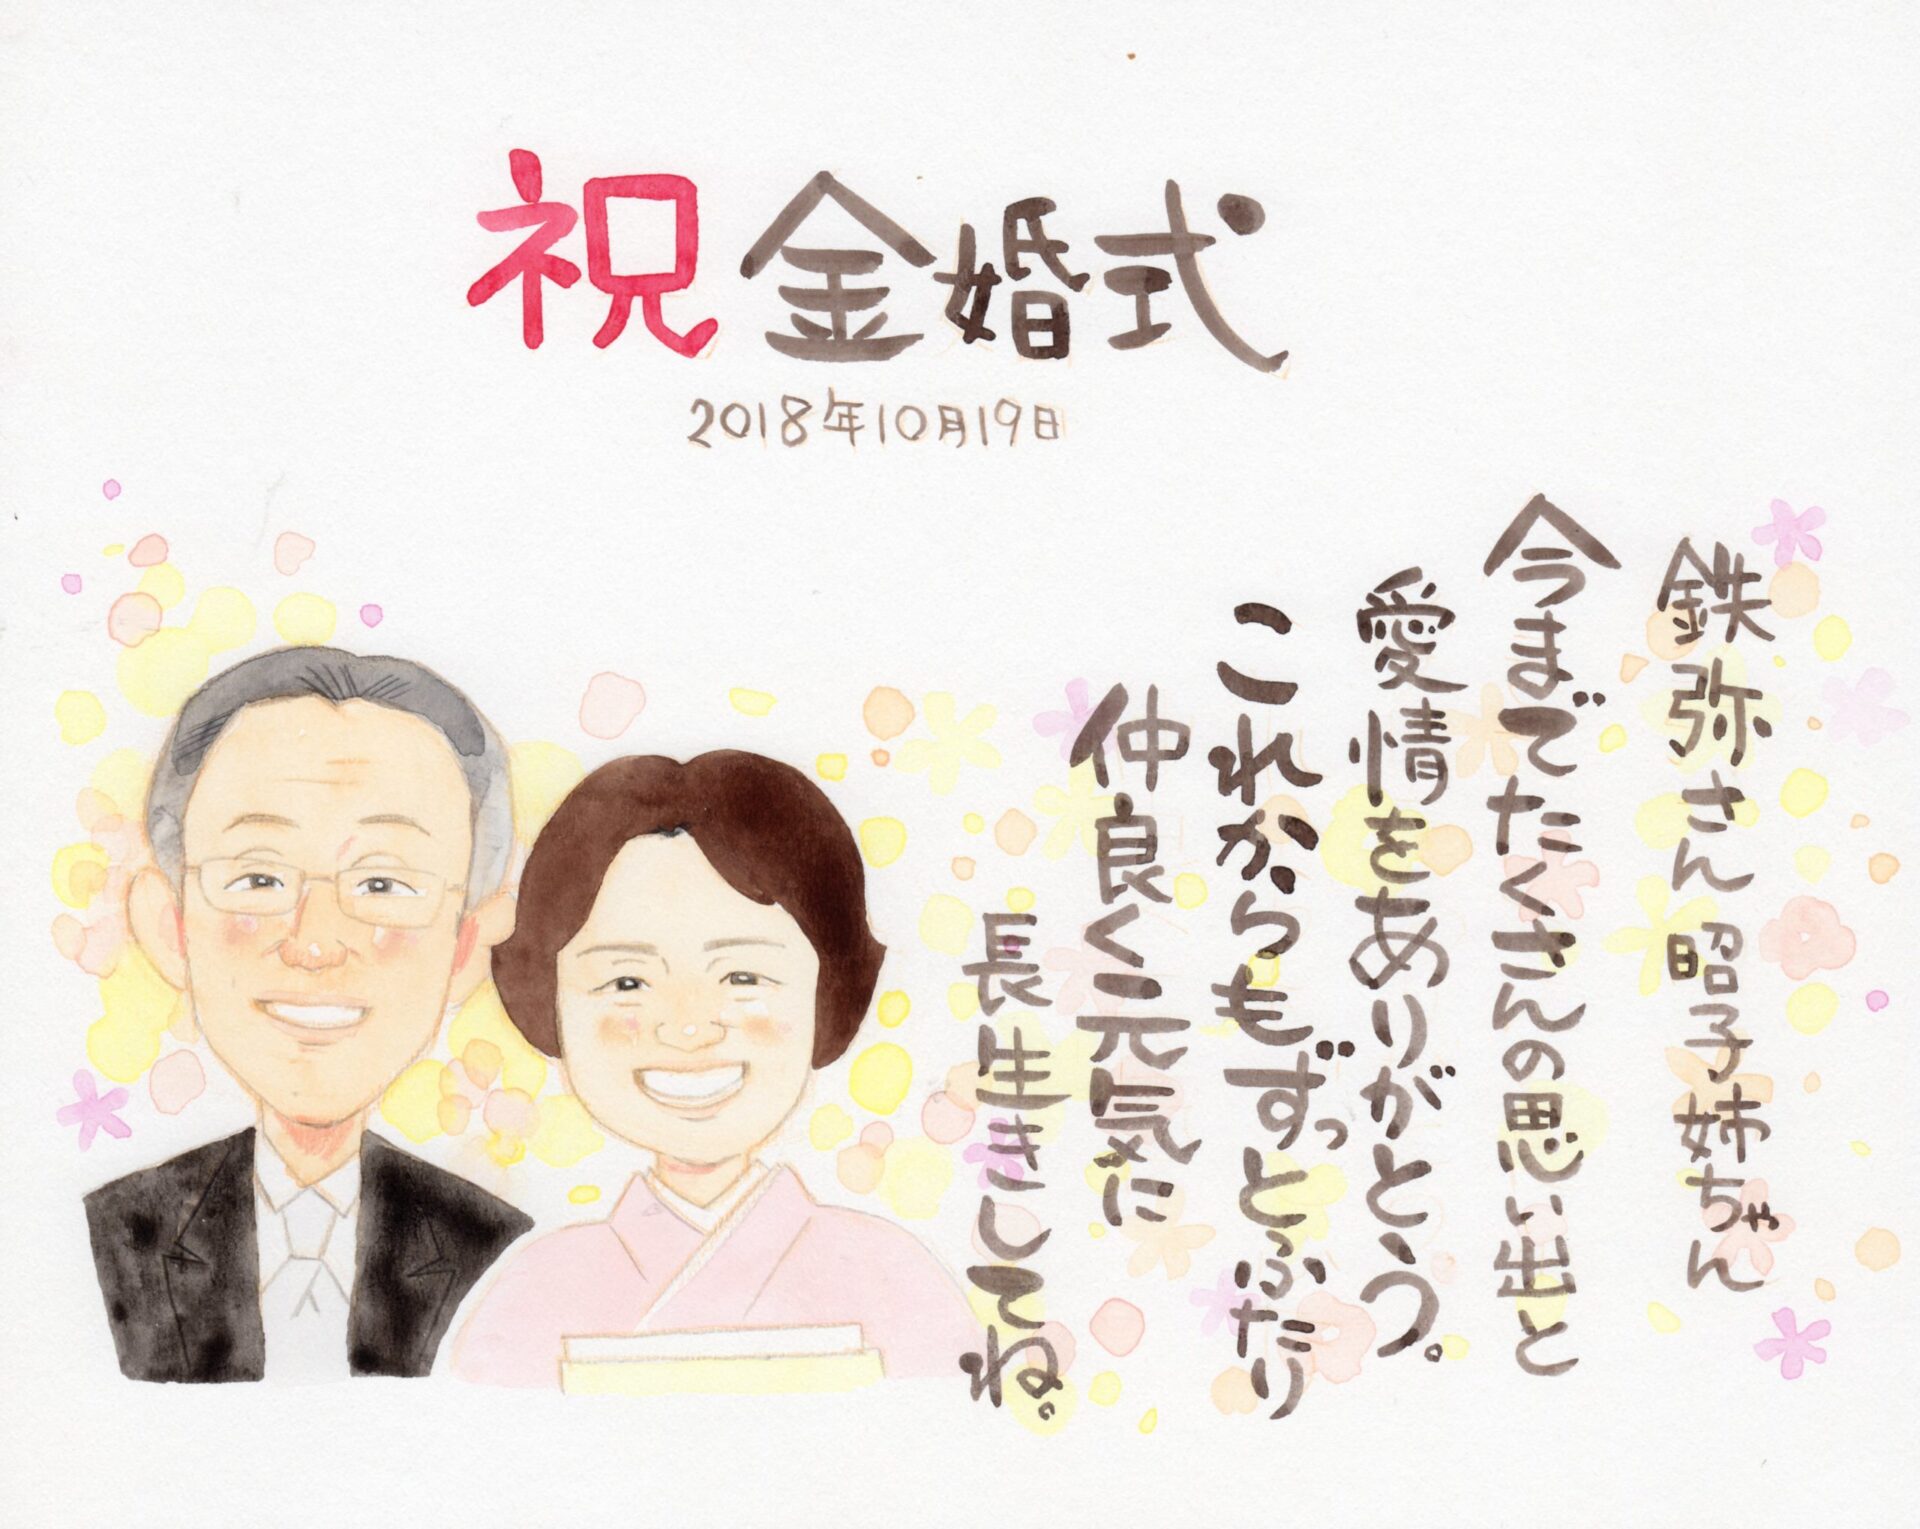 祝 金婚式
2018年10月19日
鉄弥さん 昭子姉ちゃん
今までたくさんの思い出と
愛情をありがとう。
これからもずっとふたり
仲良く元気に
長生きしてね。